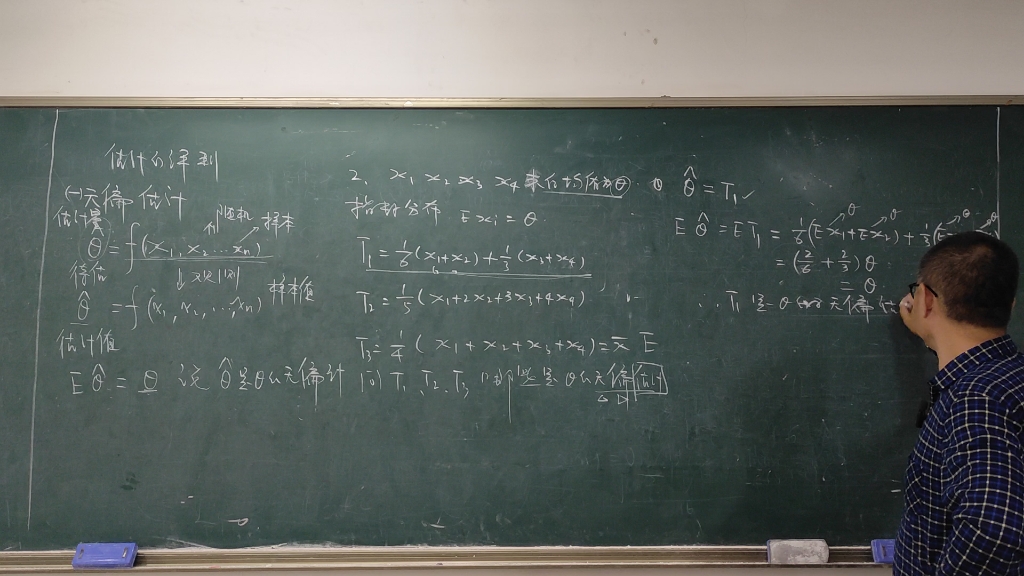 估计的准则
(一)无偏估计
估计量 随机 样本
θ̂ = f(x₁, x₂ … xₙ)
得值 ↓ 观测
θ̂ = f(x₁, x₂, …, xₙ) 样本值
估计值
Eθ̂ = θ 说 θ̂ 是θ的无偏估计
2. x₁ x₂ x₃ x₄ 来自均值为θ
指数分布 Exᵢ = θ
T₁ = 1/6 (x₁+x₂) + 1/3 (x₃+x₄)
T₂ = 1/5 (x₁+2x₂+3x₃+4x₄)
T₃ = 1/4 (x₁+x₂+x₃+x₄) = x̄ E
问 T₁ T₂ T₃ 哪些是θ的无偏估计
① θ̂ = T₁ ✓
θ θ θ θ
Eθ̂ = ET₁ = 1/6 (Ex₁+Ex₂) + 1/3 (E
= (2/6 + 2/3) θ
= θ
∴ T₁ 是 θ 的 无偏估